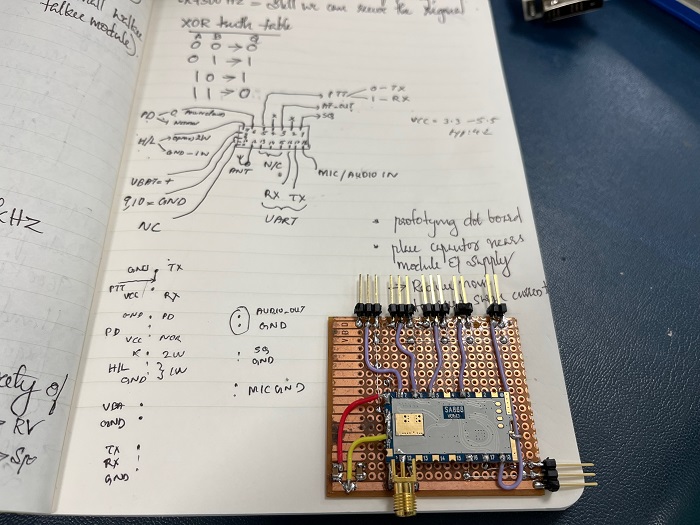 talkee module).
= still we can the signal
XOR truth table
A B Q
0 0 → 0
0 1 → 1
1 0 → 1
1 1 → 0
PTT 0 - TX
1 - RX
AF-OUT
SQ
PD
VCC = 3.3 - 5.5
H/L → open 2W
GND - 1W
VBAT = +
9,10 = GND
NC
ANT
N/C
RX TX
UART
MIC/AUDIO IN
kHZ
• prototyping dot board
• place capacitor near
module & supply
current
GND : TX
PTT
VCC RX
GND : PD
PD
VCC NOR
H/L
2W
GND } 1W
VBA
GND
TX
RX
GND
AUDIO_OUT
GND
SQ
GND
MIC GND
of
RV
SA868